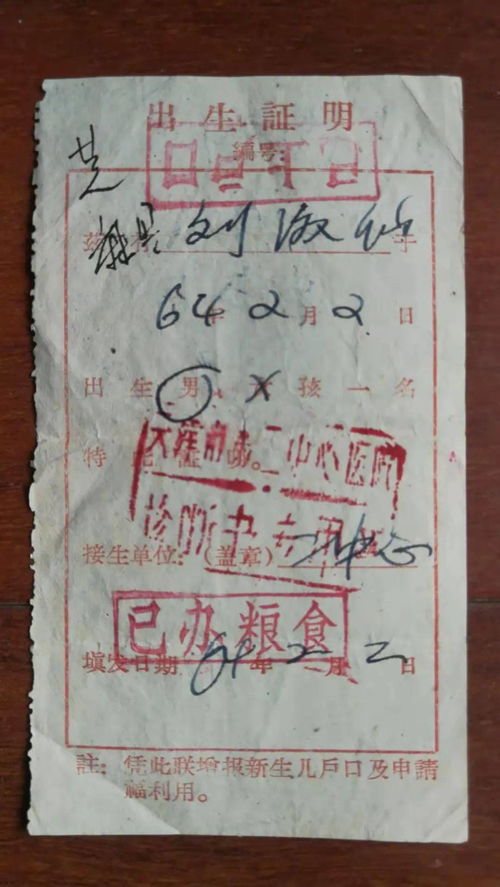 出生証明
編号:
兹 刘淑仙于
64年2月2日
出生男、女孩一名
特此証明。
天津市第二中心医院
诊断书专用
接生单位:(盖章)二中心
已办粮食
填发日期64年2月2日
註:凭此联增报新生儿戶口及申請
福利用。